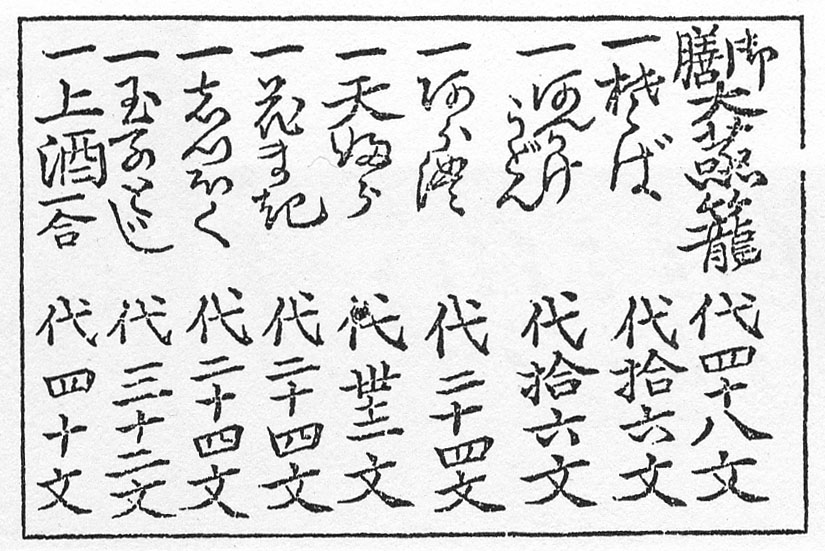 御膳大蒸籠 代四十八文
一そば 代拾六文
一あんかけうどん 代拾六文
一あられ 代二十四文
一天ぷら 代丗二文
一花まき 代二十四文
一志つぽく 代二十四文
一玉子とじ 代三十二文
一上酒一合 代四十文